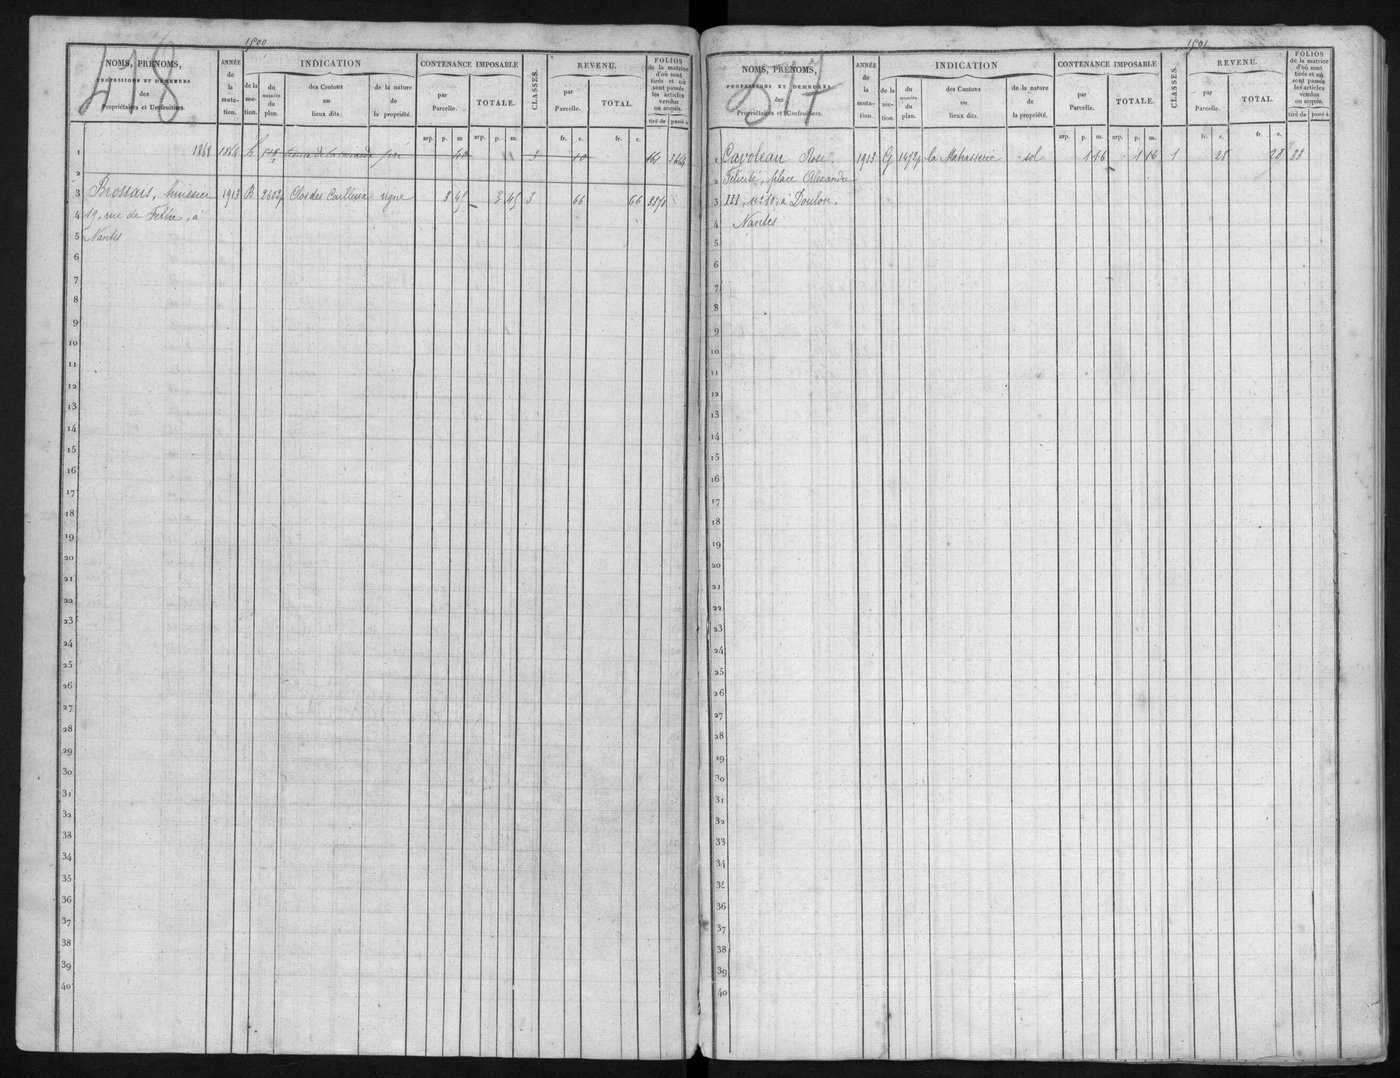 1800
418
NOMS, PRÉNOMS,
PROFESSIONS ET DEMEURES
des
Propriétaires et Usufruitiers.
ANNÉE
de
la
muta-
tion.
INDICATION
de la
sec-
tion.
du
numéro
du
plan.
des Cantons
ou
lieux dits.
de la nature
de
la propriété.
CONTENANCE IMPOSABLE
par
Parcelle.
TOTALE.
CLASSES.
REVENU.
par
Parcelle.
TOTAL.
FOLIOS
de la matrice
d'où sont
tirés et où
sont passés
les articles
vendus
ou acquis.
tiré de passé à
arp. p. m. arp. p. m. fr. c. fr. c.
1 1868 1864 pré 40 3 10
2
3 Brossais, huissier 1913 B 2602p Clos des Cailleux vigne 3 45 3 45 3 66 66
4 19, rue de Feltre, à
5 Nantes
6
7
8
9
10
11
12
13
14
15
16
17
18
19
20
21
22
23
24
25
26
27
28
29
30
31
32
33
34
35
36
37
38
39
40
1801
NOMS, PRÉNOMS,
PROFESSIONS ET DEMEURES
des
Propriétaires et Usufruitiers.
ANNÉE
de
la
muta-
tion.
INDICATION
de la
sec-
tion.
du
numéro
du
plan.
des Cantons
ou
lieux dits.
de la nature
de
la propriété.
CONTENANCE IMPOSABLE
par
Parcelle.
TOTALE.
CLASSES.
REVENU.
par
Parcelle.
TOTAL.
FOLIOS
de la matrice
d'où sont
tirés et où
sont passés
les articles
vendus
ou acquis.
tiré de passé à
arp. p. m. arp. p. m. fr. c. fr. c.
1 Cavoleau Rose 1913 G 1472p la Matrasserie sol 1 46 1 46 1 28 28 33
2 Félicité, place Alexandre
3 III, n° 10, à Doulon,
4 Nantes
5
6
7
8
9
10
11
12
13
14
15
16
17
18
19
20
21
22
23
24
25
26
27
28
29
30
31
32
33
34
35
36
37
38
39
40